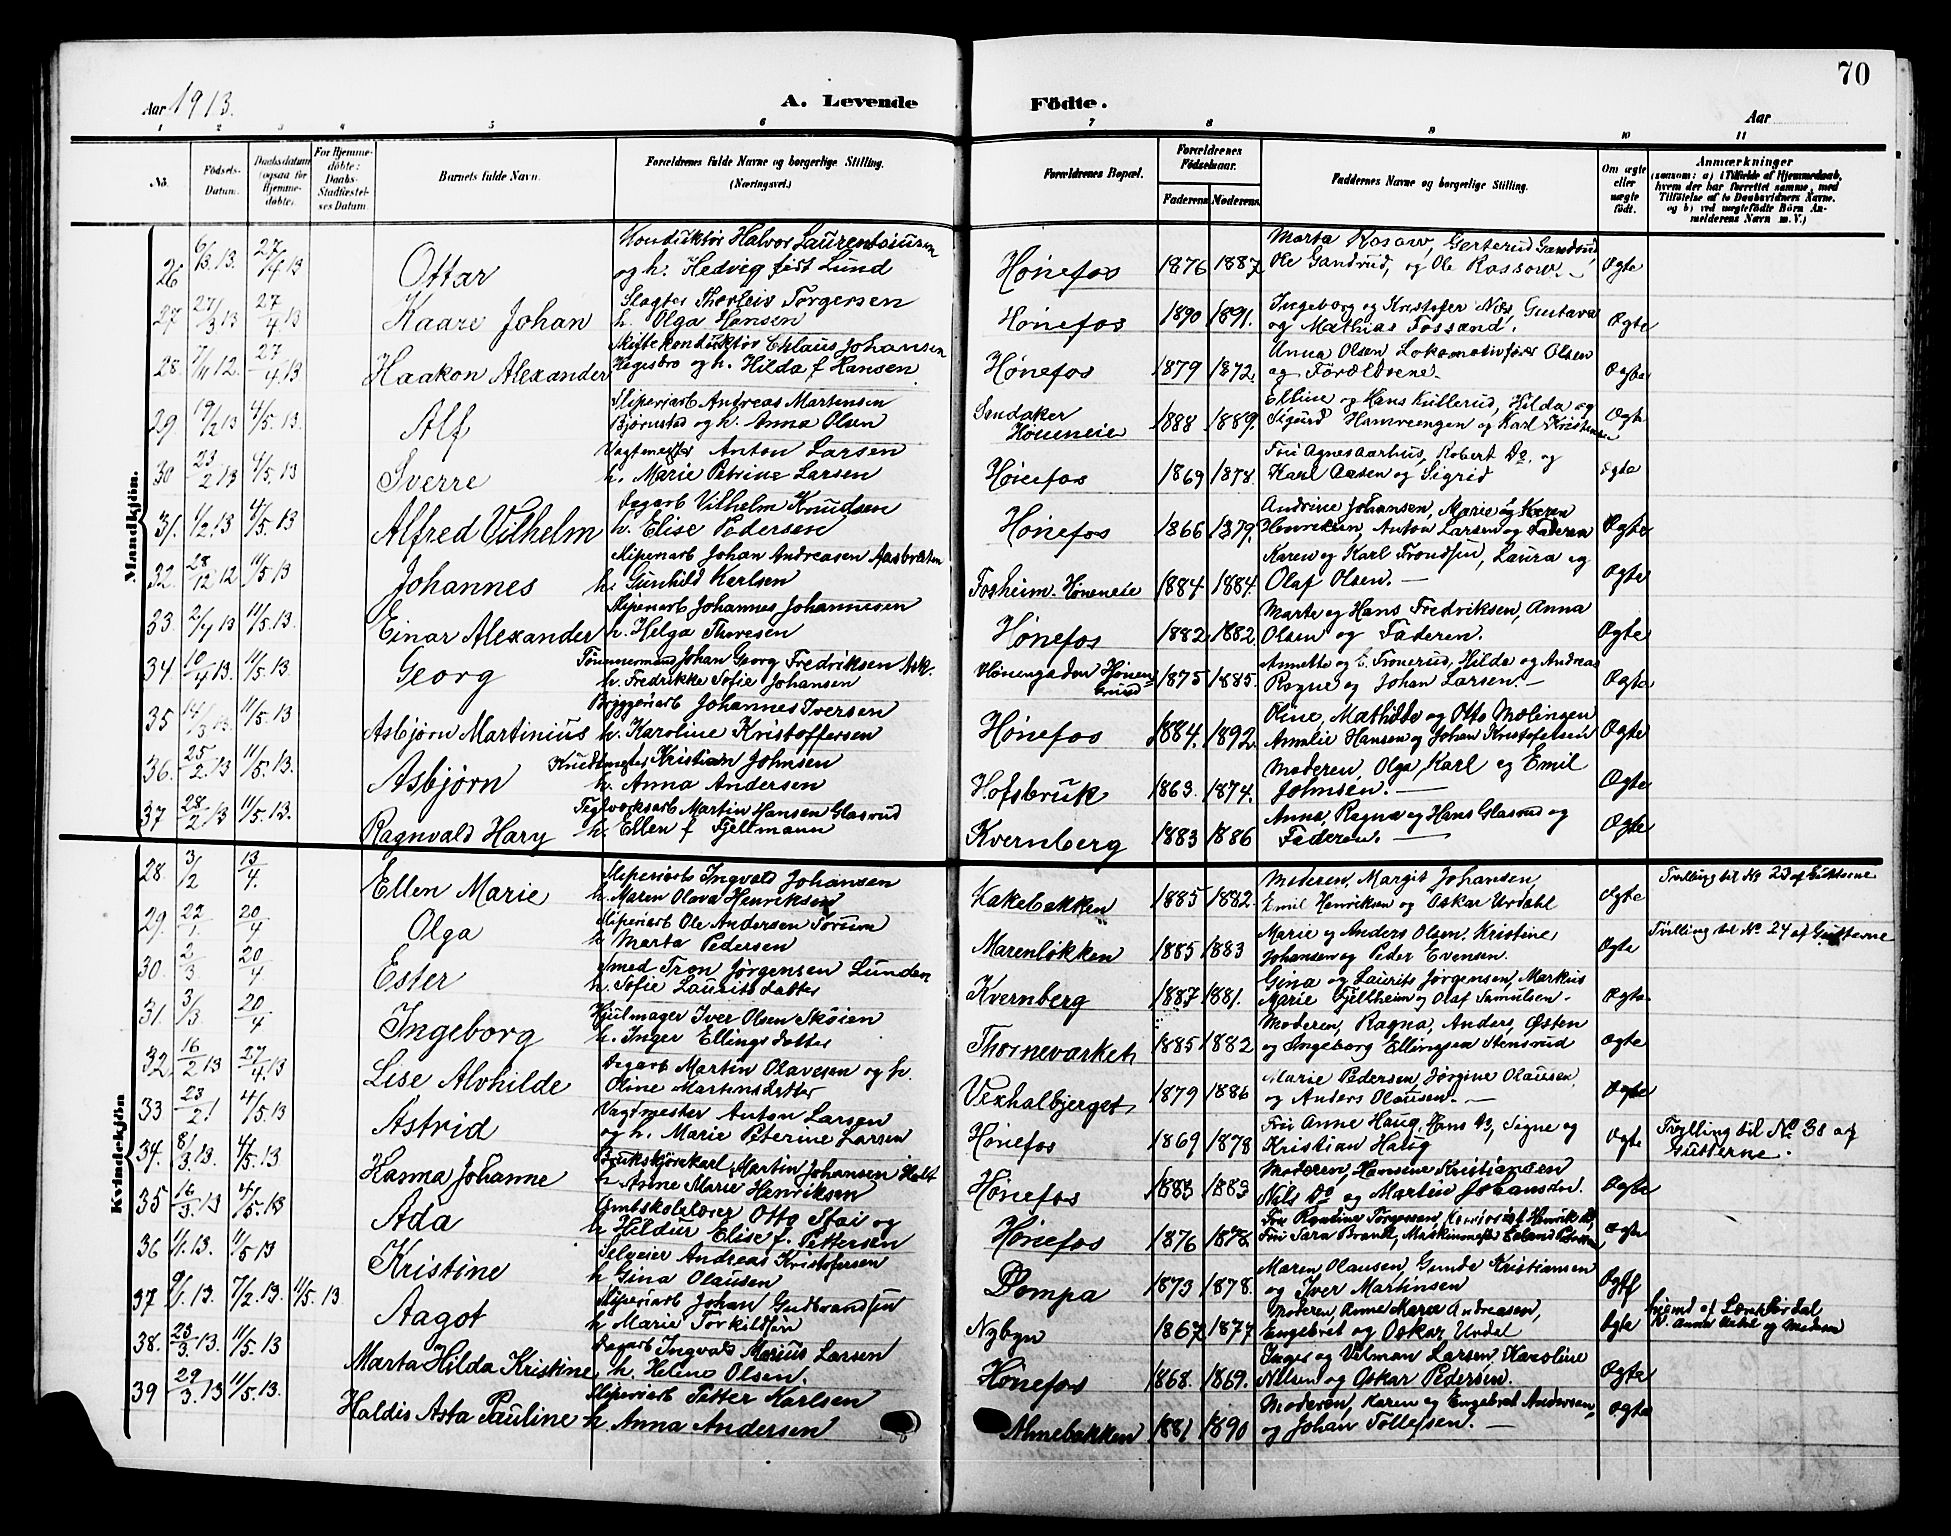 Aar 1913.
A. Levende
Födte.
70
Aar
1 2 3 4 5 6 7 8 9 10 11
No.
Födsels-Datum.
Daabsdatum (ogsaa for Hjemme-döbte).
For Hjemme-döbte: Daabs-Stadfæstel-ses Datum.
Barnets fulde Navn.
Forældrenes fulde Navne og borgerlige Stilling. (Næringsvei.)
Forældrenes Bopæl.
Forældrenes Födselsaar.
Faderens Moderens
Faddernes Navne og borgerlige Stilling.
Om ægte eller uægte födt.
Anmærkninger
(saasom: a) i Tilfælde af Hjemmedaab, hvem der har forrettet samme, med Tilföielse af to Daabsvidners Navne, og b) ved uægtefödte Börn An-melderens Navn m. V.)
Mandkjön.
26 6/3 13. 27/4 13 Ottar Konduktør Halvor Laurentiussen og h. Hedvig født Lund Hønefos 1876 1887 Marta Rosow, Gerterud Gandrud, Ole Gandrud, og Ole Rossow. Ægte
27 27/3 13 27/4 13 Kaare Johan Slagter Thorleiv Torgersen h. Olga Hansen Hønefos 1890 1891. Ingeborg og Kristofer Næs, Gustava og Mathias Fossand. Ægte
28 7/11 12. 27/4 13 Haakon Alexander Skiftekonduktør Chlaus Johansen Hegesbro og h. Hilda f Hansen Hønefos 1879 1872. Anna Olsen Lokomotivfører Olsen og Forældrene. Ægte
29. 19/2 13 4/5. 13. Alf Sliperiarb Andreas Martensen Bjørnstad og h. Anna Olsen Sondaker Høneneie 1888 1889. Elline og Hans Kullerud, Hilda og Sigurd Hamrengen og Karl Kristensen Ægte
30 23/2 13 4/5. 13 Sverre Vagtmester Anton Larsen h. Marie Petrine Larsen Hønefos 1869 1878. Frú Agnes Aarhus, Robert Do. og Karl Aasen og Sigrid ægte
31. 1/2. 13 4/5. 13 Alfred Vilhelm Dagarb Vilhelm Knudsen h. Elise Pedersen Hønefos 1866 1879. Andrine Johansen, Marie og Karen Henriksen, Anton Larsen og Faderen Ægte
32. 28/12 12 11/5 13 Johannes Slipenarb Johan Andreasen Aasbraaten h. Gunhild Karlsen Fosheim. Høneneie 1884 1884. Karen og Karl Trondsen, Laura og Olaf Olsen. — Ægte
33. 2/4 13 11/5. 13. Einar Alexander Slipenarb Johannes Johannesen h. Helga Thoresen Hønefos 1882 1882. Marte og Hans Fredriksen, Anna Olsen og Faderen. Ægte
34. 10/4 13. 11/5. 13 Georg Tømmermand Johan Georg Fredriksen Ask. h. Fredrikke Sofie Johansen Hønengaden Hønengrund 1875 1885. Annette og C. Tronerud, Hilda og Andreas Ragne og Johan Larsen. — Ægte
35 14/3 13. 11/5. 13 Asbjørn Martinius Bryggeriarb Johannes Iversen h. Karoline Kristoffersen Hønefos 1884. 1892. Oline, Mathilde og Otto Mælingen Amalie Hansen og Johan Kristofersen Ægte
36. 25/2. 13 11/5. 13. Asbjørn Kristian Johnsen h. Anna Andersen Hofsbruk 1863. 1874. Moderen, Olga, Karl og Emil Johnsen. — Ægte
37 28/2 13 11/5. 13. Ragnvald Hary Teglverksarb Martin Hansen Glasrud h. Ellen f Fjellmann Kvernberg 1883 1886 Anna, Ragna og Hans Glasrud og Faderen. — Ægte
Kvindekjön
28. 3/2 13/4. Ellen Marie Sliperiarb Ingvald Johansen h. Maren Olava Henriksen Kakebakken 1885 1882. Moderen, Margit Johansen, Emil Henriksen og Oskar Urdahl Ægte Tvilling til No 23 af Gutterne
29. 22/1 20/4 Olga Sliperiarb Ole Andersen Sørum h Marta Pedersen Marenløkken 1885 1883 Marie og Anders Olsen. Kristine Johansen og Peder Evensen. Ægte Tvilling til No. 24 af Gutterne
30. 2/3 20/4 Ester Smed Tron Jørgensen Lunden h. Sofie Lauritsdatter Kvernberg 1887 1881. Gina og Laurits Jørgensen, Markus Marie Fjellheim og Olaf Samulsen. Ægte
31. 3/3 20/4 Ingeborg Hjulmager Iver Olsen Skøien h. Inger Ellingsdatter Thornevarket 1885 1882 Moderen, Ragna, Anders, Østen og Ingeborg Ellingsen Stensrud Ægte
32 16/2 13 27/4. 13 Lise Alvhilde Dagarb Martin Olavesen og h. Oline Martinsdatter Vexhalbjerget 1879 1886 Marie Pedersen, Jørgine Olausen, og Anders Olausen. — Ægte
33 23/2 4/5. 13 Astrid Vagtmester Anton Larsen og h. Marie Peterine Larsen Hønefos 1869 1878 Frú Anne Haug, Hans Do, Signe og Kristian Haug Ægte Tvilling til No. 30 af Gutterne.
34. 8/3. 13. 4/5. 13 Hanna Johanne Brukskjørekarl Martin Johansen Holt h Anne Marie Henriksen Hønefos 1883 1883 Moderen, Hansine Kristiansen Nils Do og Martin Johansen. Ægte
35 16/3. 13 4/5. 13 Ada Amtskolelærer Otto Sfai og h Hildur Elise f. Pettersen Hønefos 1876 1878 Frú Sara Brandt, Ægte
36 1/1. 13. 11/5 13 Kristine Selveier Andreas Kristofersen h Gina Olausen Dompa 1873 1878. Maren Olausen, Gunde Kristiansen og Iver Martinsen Ægte
37 9/1. 13. 7/2. 13. 11/5. 13 Aagot Sliperiarb Johan Gudbrandsen h Marie Torkildsen Nybyn 1867 1877 Moderen, Anne Marie Andreasen, Engebret og Oskar Urdal Ægte
38. 23/3. 13 11/5. 13 Marta Hilda Kristine Dagarb Ingvald Marius Larsen h. Helene Olsen. Hønefos 1868. 1869. Inger og Velman Larsen, Karoline Nilsen og Oskar Pedersen. Ægte
39 29/3. 13 11/5. 13. Haldis Asta Pauline Sliperiarb Petter Karlsen h Anna Andersen Almebakken 1881 1890 Moderen, Karen og Engebret Andersen, og Johan Tollefsen. — Ægte